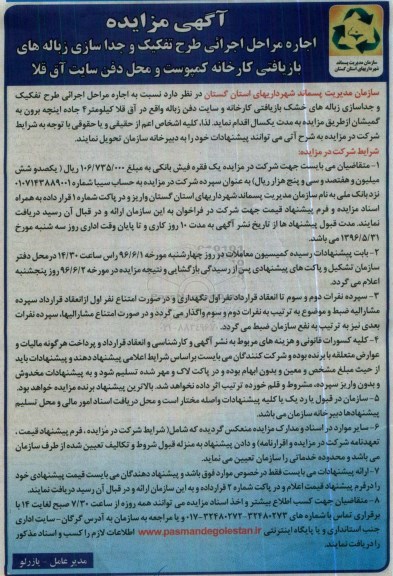 آگهی مزایده
اجاره مراحل اجرائی طرح تفکیک و جداسازی زباله های
بازیافتی کارخانه کمپوست و محل دفن سایت آق قلا
سازمان مدیریت پسماند
شهرداریهای استان گلستان
سازمان مدیریت پسماند شهرداریهای استان گلستان در نظر دارد نسبت به اجاره مراحل اجرائی طرح تفکیک
و جداسازی زباله های خشک بازیافتی کارخانه و سایت دفن زباله واقع در آق قلا کیلومتر ۴ جاده اینچه برون به
گمیشان از طریق مزایده به مدت یکسال اقدام نماید. لذا، کلیه اشخاص اعم از حقیقی و یا حقوقی با توجه به شرایط
شرکت در مزایده به شرح آتی می توانند پیشنهادات خود را به دبیرخانه سازمان تحویل نمایند.
شرایط شرکت در مزایده:
۱- متقاضیان می بایست جهت شرکت در مزایده یک فقره فیش بانکی به مبلغ ۱۰۶/۷۳۵/۰۰۰ ریال ( یکصدو شش
میلیون و هفتصد و سی و پنج هزار ریال) به عنوان سپرده شرکت در مزایده به حساب سیبا شماره ۰۱۰۷۱۴۳۸۸۹۰۰۱
نزد بانک ملی به نام سازمان مدیریت پسماند شهرداریهای استان گلستان واریز و در پاکت شماره ۱ قرار داده به همراه
اسناد مزایده و فرم پیشنهاد قیمت جهت شرکت در فراخوان به این سازمان ارائه و در قبال آن رسید دریافت
نمایند. مدت قبول پیشنهاد ها از تاریخ نشر آگهی به مدت ۱۰ روز کاری و تا پایان وقت اداری روز سه شنبه مورخ
۱۳۹۶/۵/۳۱ می باشد.
۲- بابت پیشنهادات رسیده کمیسیون معاملات در روز چهارشنبه مورخه ۹۶/۶/۱ راس ساعت ۱۴/۳۰ در محل دفتر
سازمان تشکیل و پاکت های پیشنهادی پس از رسیدگی بازگشایی و نتیجه مزایده در مورخه ۹۶/۶/۲ روز پنجشنبه
اعلام می گردد.
۳- سپرده نفرات دوم و سوم تا انعقاد قرارداد نفر اول نگهداری و در صورت امتناع نفر اول از انعقاد قرارداد سپرده
مشارالیه ضبط و موضوع به ترتیب به نفرات دوم و سوم واگذار می گردد و در صورت امتناع مشارالیها، سپرده نفرات
بعدی نیز به ترتیب به نفع سازمان ضبط می گردد.
۴- کلیه کسورات قانونی و هزینه های مربوط به نشر آگهی و کارشناسی و انعقاد قرارداد و پرداخت هر گونه مالیات و
عوارض متعلقه با برنده بوده و شرکت کنندگان می بایست بر اساس شرایط اعلامی پیشنهاد دهند و پیشنهادات باید
از حیث مبلغ مشخص و معین و بدون ابهام بوده و در پاکت لاک و مهر شده تسلیم شود و به پیشنهادات مخدوش
و بدون واریز سپرده، مشروط و قلم خورده ترتیب اثر داده نخواهد شد. بالاترین پیشنهاد برنده مزایده خواهد بود.
۵- سازمان در قبول یا رد یک یا کلیه پیشنهادات واصله مختار است و محل دریافت اسناد امور مالی و محل تسلیم
پیشنهادها دبیرخانه سازمان می باشد.
۶- سایر موارد در اسناد و مدارک مزایده منعکس گردیده که شامل( شرایط شرکت در مزایده ، فرم پیشنهاد قیمت ،
تعهدنامه شرکت در مزایده و اقرارنامه) و دادن پیشنهاد به منزله قبول شروط و تکالیف تعیین شده از طرف سازمان
می باشد و محدوده خدماتی را سازمان تعیین می نماید.
۷- ارائه پیشنهادات می بایست فقط در خصوص موارد فوق باشد و پیشنهاد دهندگان می بایست قیمت پیشنهادی خود
را در فرم پیشنهاد قیمت اعلام و در پاکت شماره ۲ قرار داده و به این سازمان ارائه و در قبال آن رسید دریافت نمایند.
۸- متقاضیان جهت کسب اطلاع بیشتر و اخذ اسناد مزایده می توانند همه روزه از ساعت ۷/۳۰ صبح لغایت ۱۴ با
برقراری تماس با شماره های ۳۲۴۸۰۲۷۳-۳۲۴۸۰۲۷۳-۰۱۷ و یا مراجعه به سازمان به آدرس گرگان - سایت اداری
جنب استانداری و یا پایگاه اینترنتی www.pasmandegolestan.ir اطلاعات لازم را کسب و اسناد مذکور
را دریافت نمایند.
مدیر عامل - یازرلو